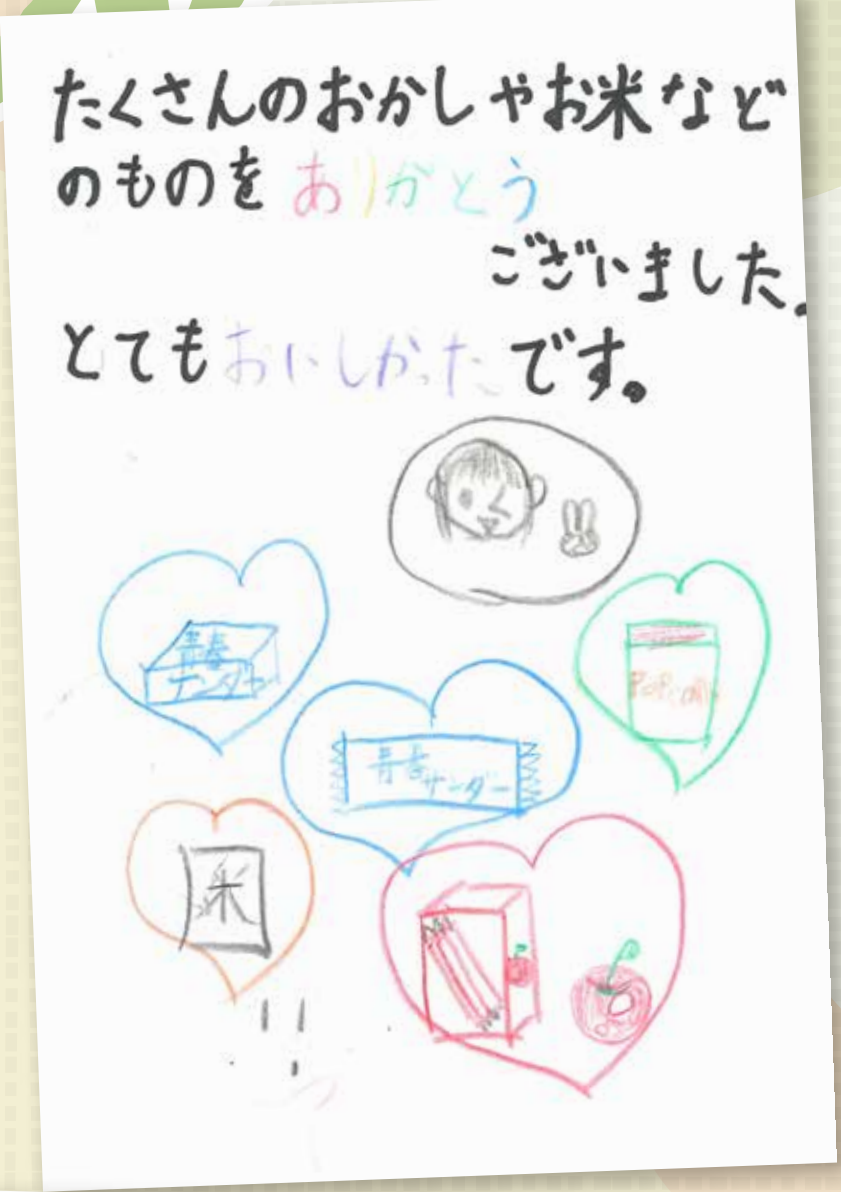 たくさんのおかしやお米など
のものをありがとう
ございました。
とてもおいしかったです。
青春
サンダー
青春
サンダー
POPcorn
米